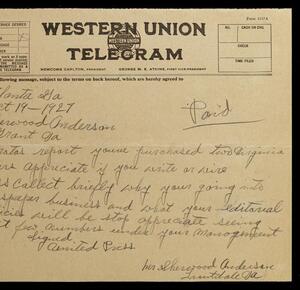 Form 1217A
WESTERN UNION
WESTERN UNION
TELEGRAM
NEWCOMB CARLTON, PRESIDENT GEORGE W. E. ATKINS, FIRST VICE-PRESIDENT
CASH OR CHG
CHECK
TIME FILED
llowing message, subject to the terms on back hereof, which are hereby agreed to
lanta Ga
ct 19 - 1927
Paid
erwood Anderson
Grant Va
report you've purchased two Virginia
appreciate if you write or wire
Collect briefly why your going into
spaper business and what your Editorial
cies will be stop appreciate seeing
t few numbers under your management
Signed
United Press
Mrs Sherwood Anderson